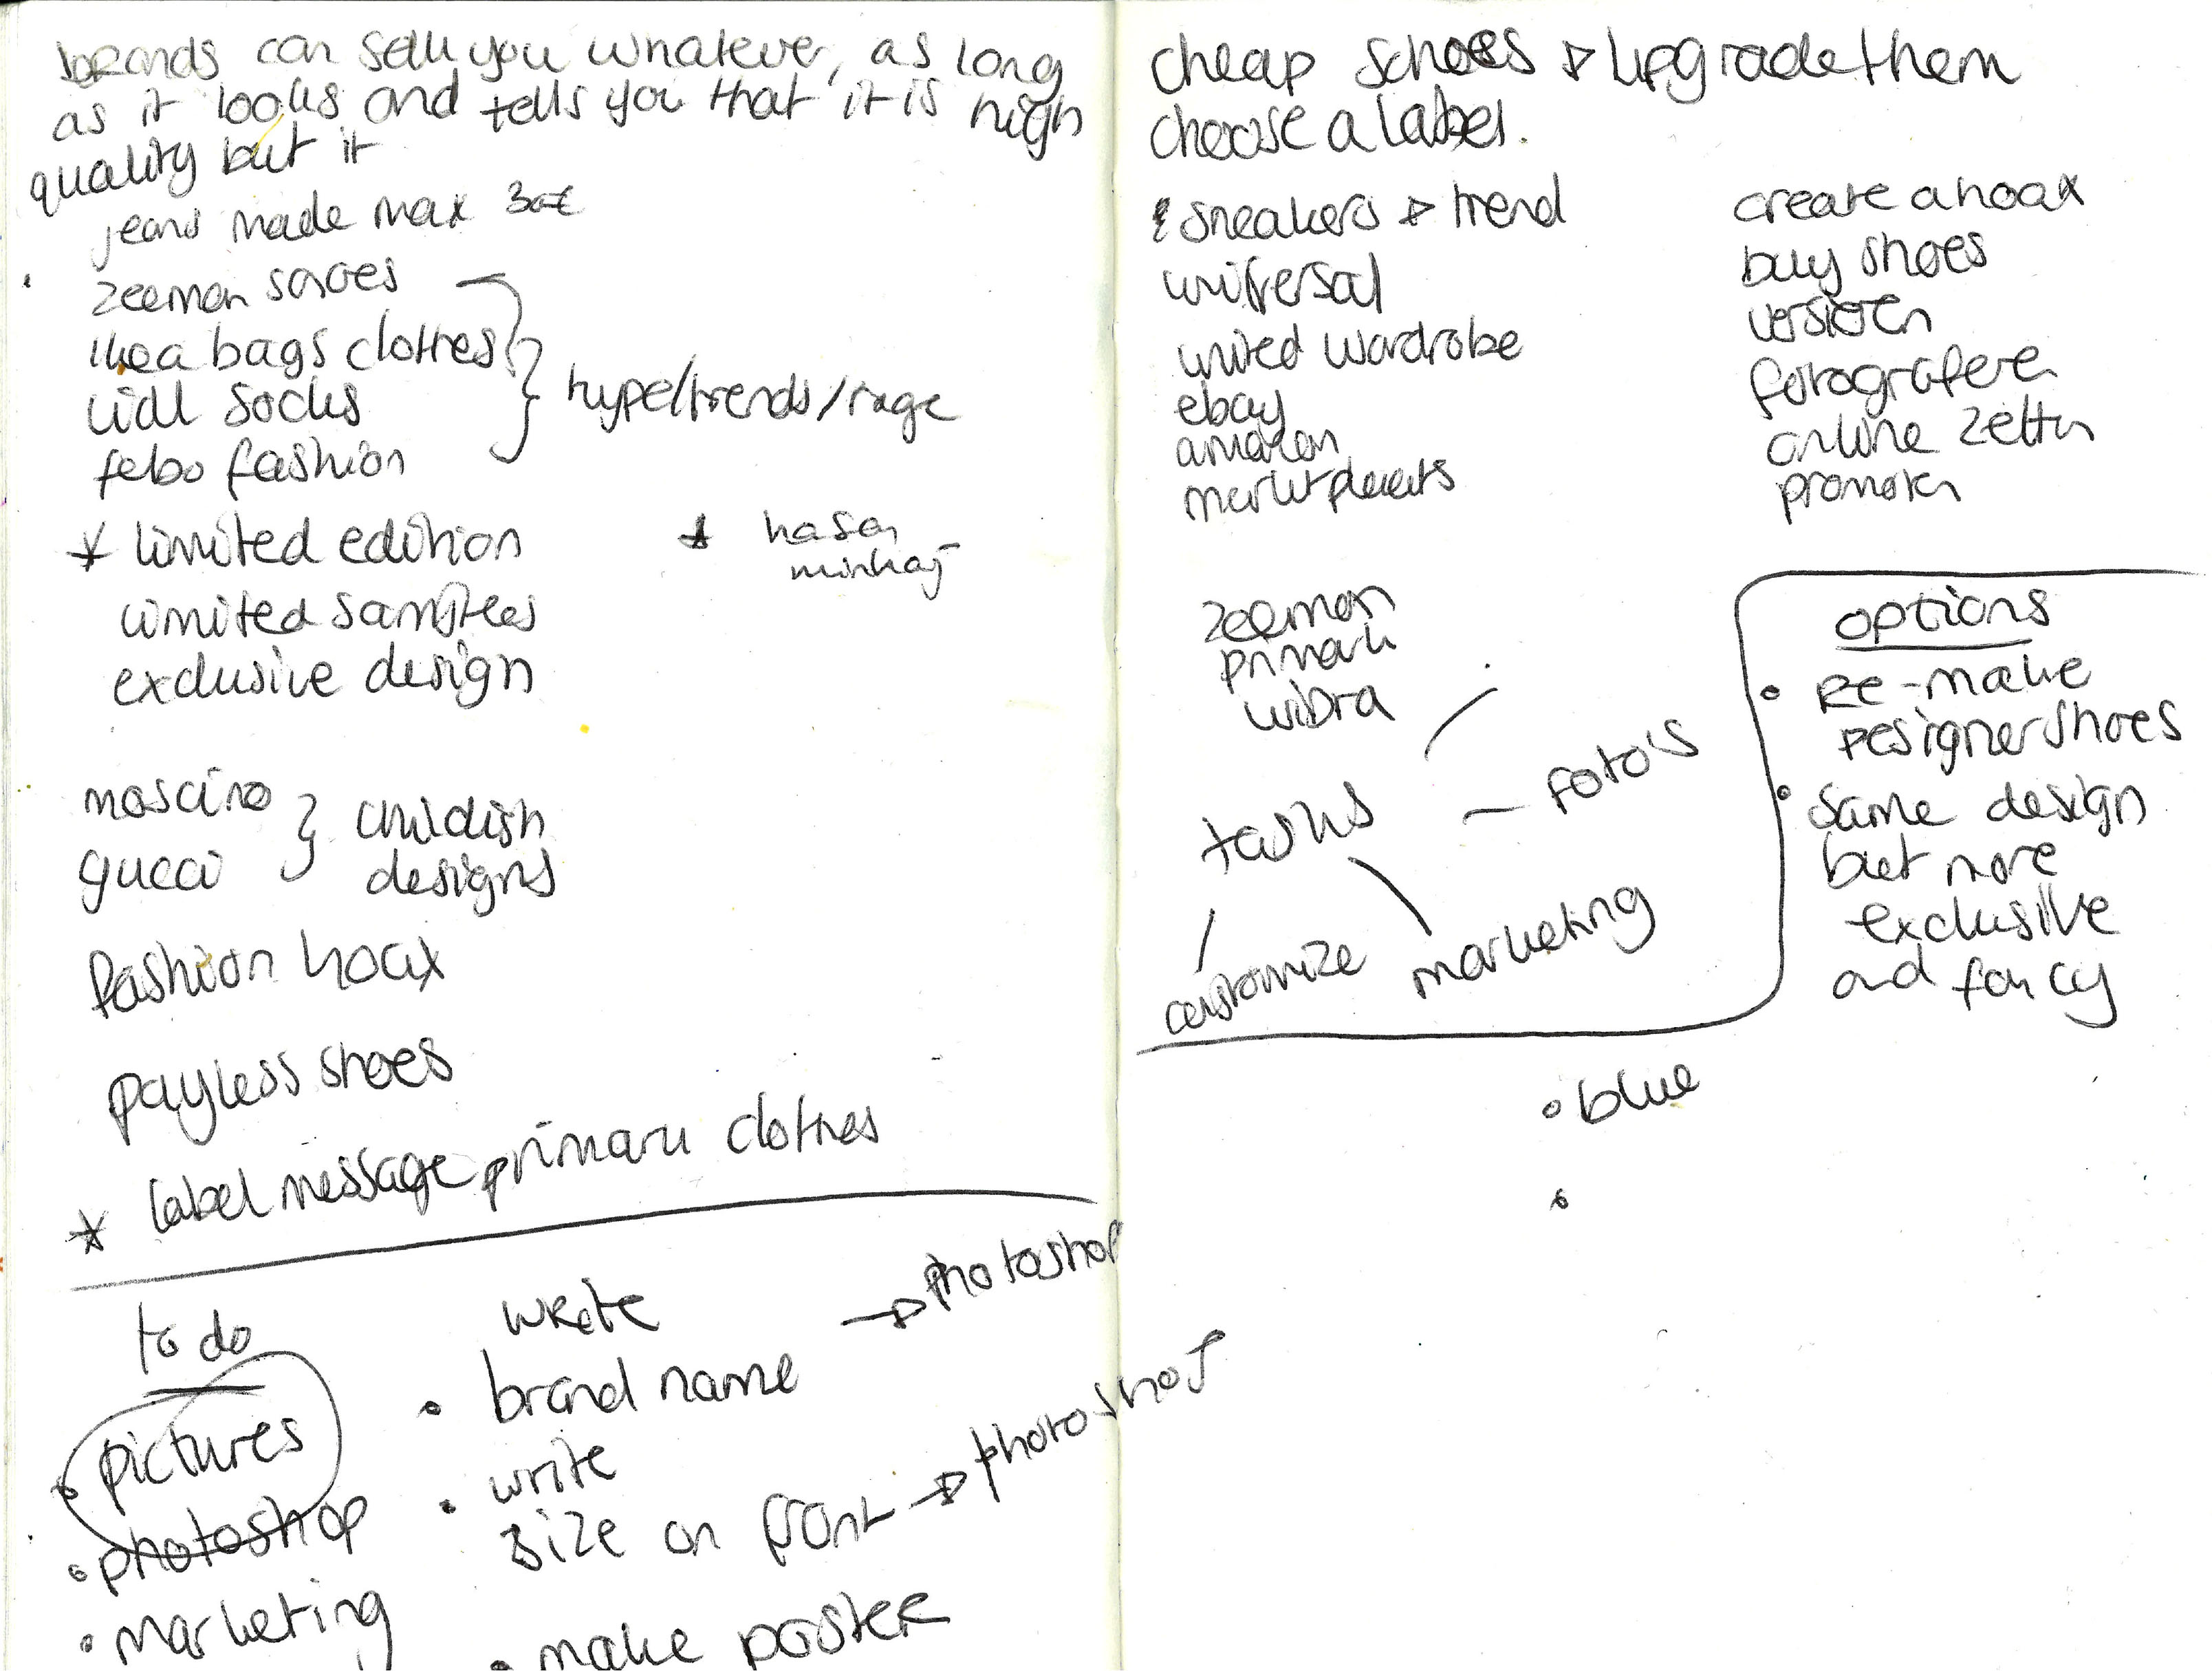 brands can sell you whatever, as long
as it looks and tells you that it is high
quality but it
jeans made max 30€
zeeman schoes
ikea bags clothes
lidl socks
febo fashion
hype/trends/rage
* limited edition
* hasan
minhaj
limited samples
exclusive design
moscino
gucci
childish
designs
fashion hoax
payless shoes
* label message primark clothes
to do
• pictures
• photoshop
• marketing
write
• brand name
→ photoshop
• write
size on front → photoshop
• make poster
cheap schoes → upgrade them
choose a label.
sneakers → trend
universal
united wardrobe
ebay
amazon
marktplaats
create a hoax
buy shoes
versieren
fotograferen
online zetten
promoten
zeeman
primark
wibra
tasks
— foto's
marketing
customize
options
• re-make
designer shoes
• same design
but more
exclusive
and fancy
• blue
•